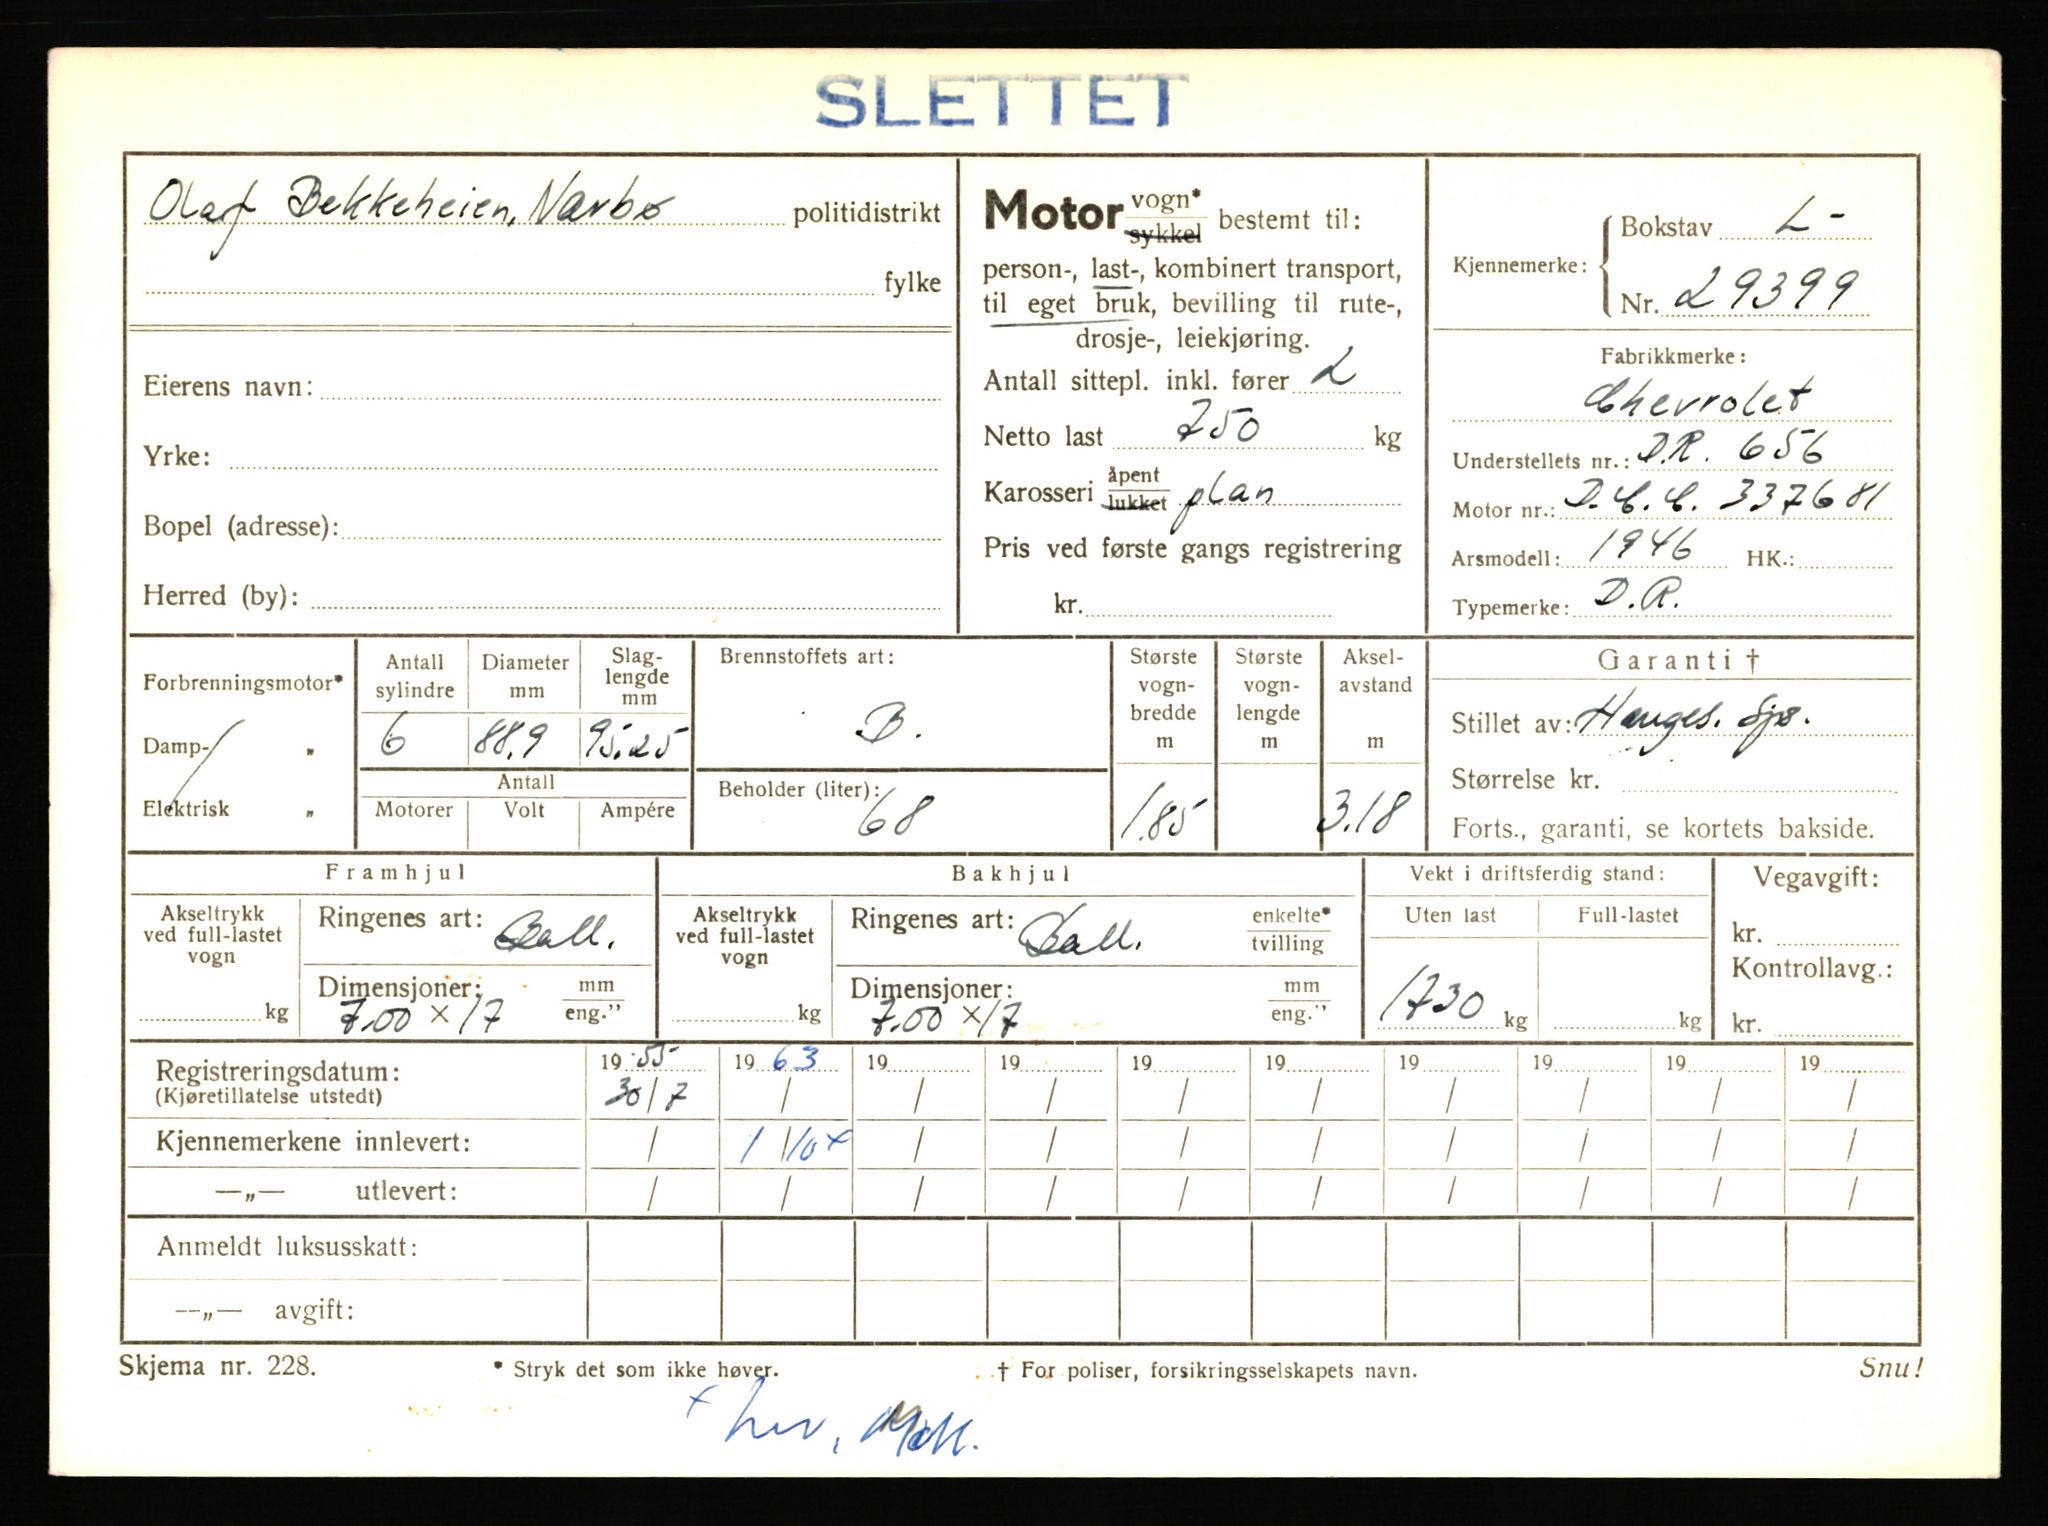 SLETTET
Olaf Bekkeheien, Nærbø politidistrikt
fylke
Eierens navn:
Yrke:
Bopel (adresse):
Herred (by):
Motor vogn* sykkel bestemt til:
person-, last-, kombinert transport,
til eget bruk, bevilling til rute-,
drosje-, leiekjøring.
Antall sittepl. inkl. fører 2
Netto last 750 kg
Karosseri åpent lukket plan
Pris ved første gangs registrering
kr.
Kjennemerke: Bokstav L-
Nr. 29399
Fabrikkmerke:
Chevrolet
Understellets nr.: D.R. 656
Motor nr.: D.C.C. 337681
Arsmodell: 1946 HK.:
Typemerke: D.R.
Forbrenningsmotor*
Damp- "
Elektrisk "
Antall sylindre Diameter mm Slag- lengde mm
6 88,9 95.25
Antall
Motorer Volt Ampére
Brennstoffets art:
B.
Beholder (liter): 68
Største vogn- bredde m
1.85
Største vogn- lengde m
Aksel- avstand m
3.18
Garanti †
Stillet av: Hauges. Sjø.
Størrelse kr.
Forts., garanti, se kortets bakside.
Framhjul
Akseltrykk ved full-lastet vogn
kg
Ringenes art: Ball.
Dimensjoner: mm eng."
7.00 × 17
Bakhjul
Akseltrykk ved full-lastet vogn
kg
Ringenes art: Ball. enkelte* tvilling
Dimensjoner: mm eng."
7.00 × 17
Vekt i driftsferdig stand:
Uten last Full-lastet
1730 kg kg
Vegavgift:
kr.
Kontrollavg.:
kr.
Registreringsdatum: 19 55 19 63 19 19 19 19 19 19 19 19
(Kjøretillatelse utstedt) 30/7 / / / / / / / / /
Kjennemerkene innlevert: / 1/10 + / / / / / / / /
—„— utlevert: / / / / / / / / / /
Anmeldt luksusskatt:
—„— avgift:
Skjema nr. 228. * Stryk det som ikke høver. † For poliser, forsikringsselskapets navn. Snu!